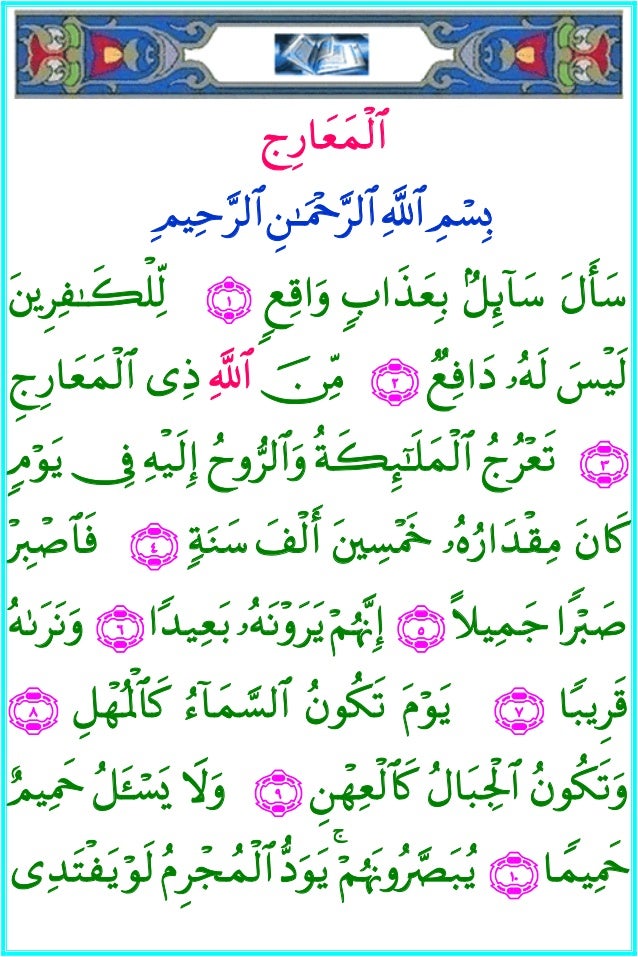 ٱلْمَعَارِج
بِسْمِ ٱللَّهِ ٱلرَّحْمَـٰنِ ٱلرَّحِيمِ
سَأَلَ سَآئِلٌۢ بِعَذَابٍ وَاقِعٍ ١ لِّلْكَـٰفِرِينَ
لَيْسَ لَهُۥ دَافِعٌ ٢ مِّنَ ٱللَّهِ ذِى ٱلْمَعَارِجِ
٣ تَعْرُجُ ٱلْمَلَـٰٓئِكَةُ وَٱلرُّوحُ إِلَيْهِ فِى يَوْمٍ
كَانَ مِقْدَارُهُۥ خَمْسِينَ أَلْفَ سَنَةٍ ٤ فَٱصْبِرْ
صَبْرًا جَمِيلًا ٥ إِنَّهُمْ يَرَوْنَهُۥ بَعِيدًا ٦ وَنَرَىٰهُ
قَرِيبًا ٧ يَوْمَ تَكُونُ ٱلسَّمَآءُ كَٱلْمُهْلِ ٨
وَتَكُونُ ٱلْجِبَالُ كَٱلْعِهْنِ ٩ وَلَا يَسْـَٔلُ حَمِيمٌ
حَمِيمًا ١٠ يُبَصَّرُونَهُمْ ۚ يَوَدُّ ٱلْمُجْرِمُ لَوْ يَفْتَدِى